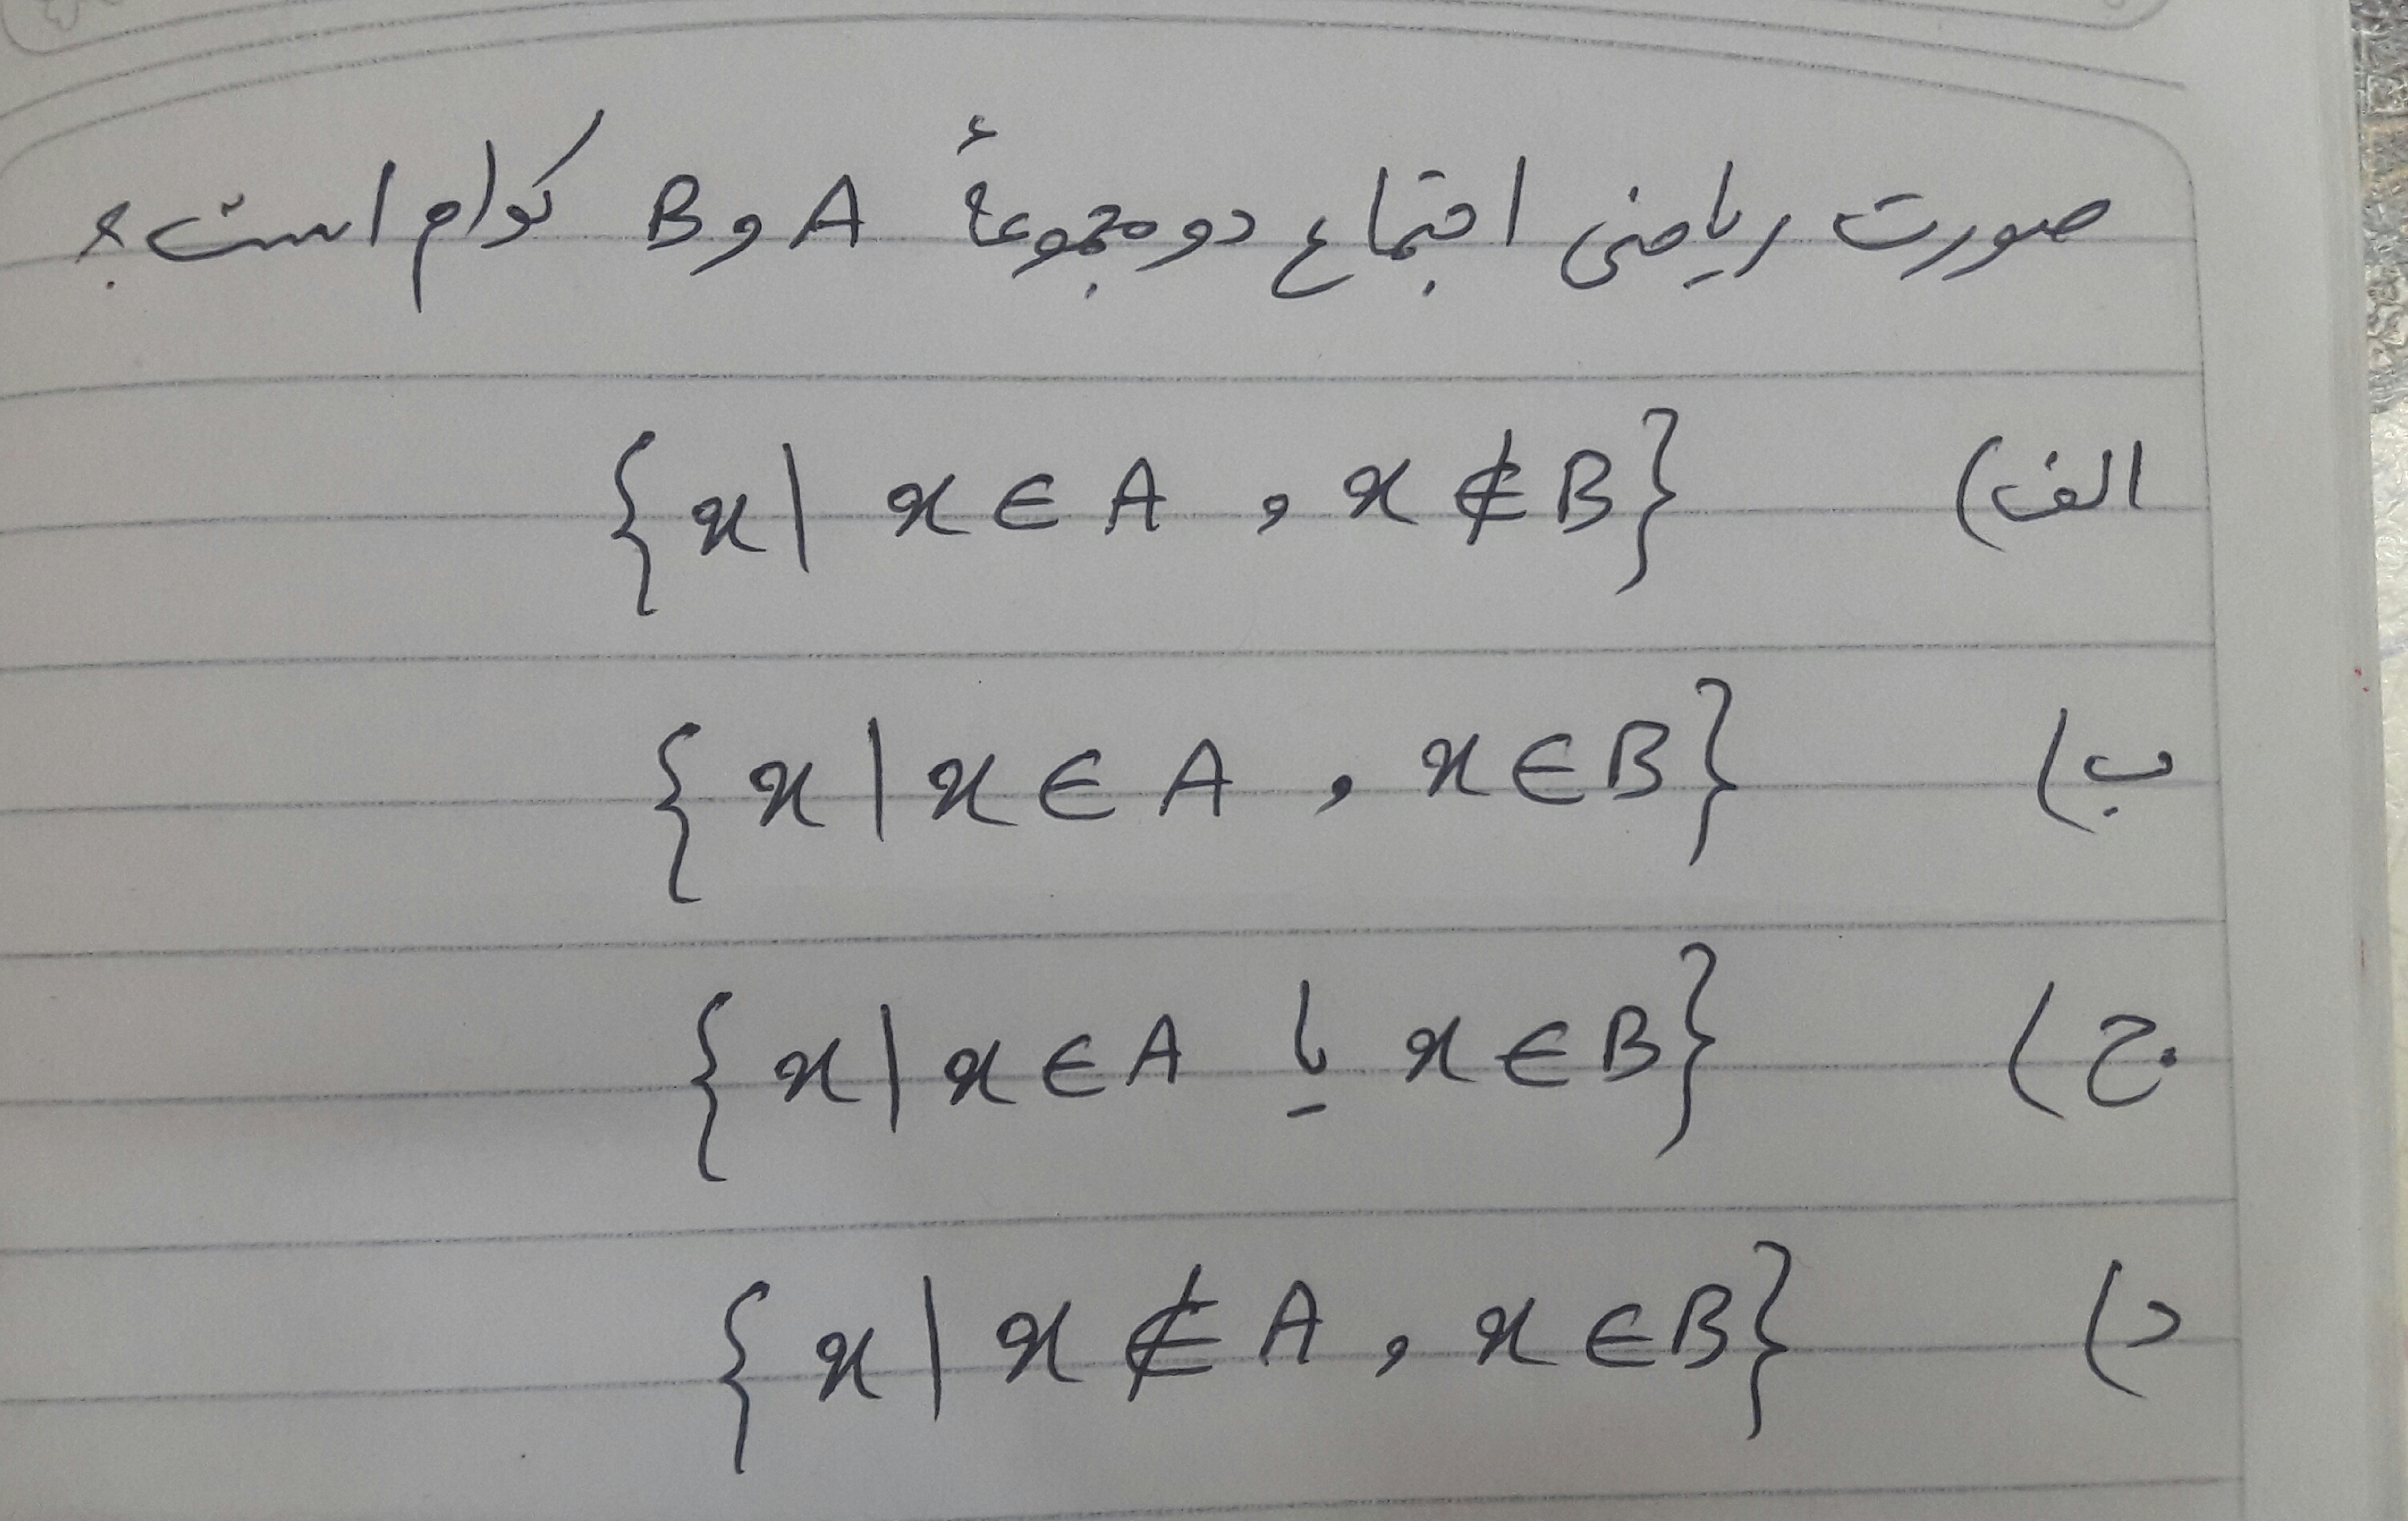 صورت ریاضی اجتماع دو مجموعهٔ A و B کدام است؟
الف) {x | x ∈ A , x ∉ B}
ب) {x | x ∈ A , x ∈ B}
ج) {x | x ∈ A یا x ∈ B}
د) {x | x ∉ A , x ∈ B}